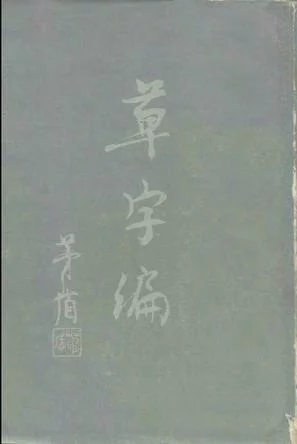 草字编
茅盾